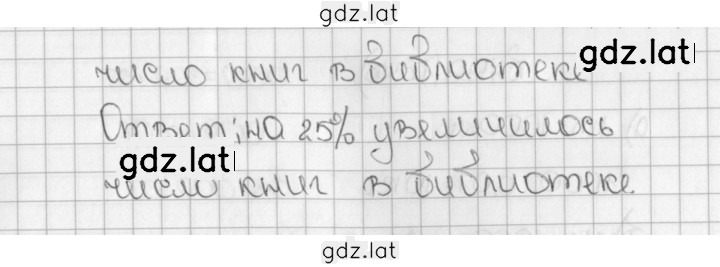 gdz.lat
число книг в библиотеке
gdz.lat
Ответ: на 25% увеличилось
gdz.lat
число книг в библиотеке
gdz.lat